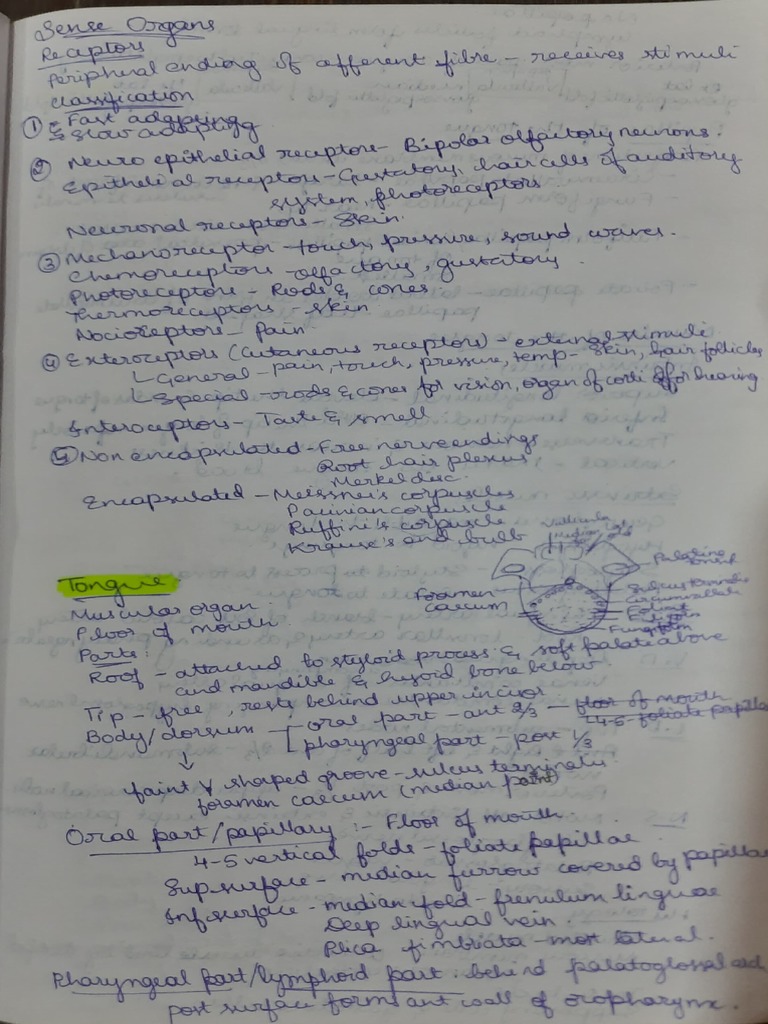 Sense Organs
Receptors
Peripheral ending of afferent fibre - receives stimuli
Classification
① - Fast adapting
- Slow adapting
② Neuro epithelial receptors - Bipolar olfactory neurons.
Epithelial receptors - Gustatory, hair cells of auditory
system, photoreceptors
Neuronal receptors - Skin
③ Mechanoreceptor - touch, pressure, sound waves.
Chemoreceptors - olfactory, gustatory.
Photoreceptors - Rods & cones.
Thermoreceptors - skin
Nocioceptors - Pain
④ Exteroceptors (Cutaneous receptors) - external stimuli
General - pain, touch, pressure, temp - skin, hair follicles
Special - rods & cones for vision, organ of corti for hearing
Interoceptors - Taste & smell
⑤ Non encapsulated - Free nerve endings
Root hair plexus
Merkel disc.
Encapsulated - Meissner's corpuscles
Pacinian corpuscle
Ruffini's corpuscle
Krause's end bulb
Vallecula
Median
Palatine tonsil
Foramen caecum
Sulcus terminalis
Circumvallate
Foliate
Filiform
Fungiform
Tongue
Muscular organ
Floor of mouth
Parts:
Roof - attached to styloid process & soft palate above
and mandible & hyoid bone below
Tip - free, rests behind upper incisor
Body/dorsum - oral part - ant 2/3 - floor of mouth
4-5 foliate papillae
pharyngeal part - post 1/3
↓
faint V shaped groove - sulcus terminalis
foramen caecum (median point)
Oral part/papillary :- Floor of mouth.
4-5 vertical folds - foliate papillae
Sup surface - median furrow covered by papillae
Inf surface - median fold - frenulum linguae
Deep lingual vein.
Plica fimbriata - most lateral.
Pharyngeal part/lymphoid part. behind palatoglossal
post surface forms ant wall of oropharynx.